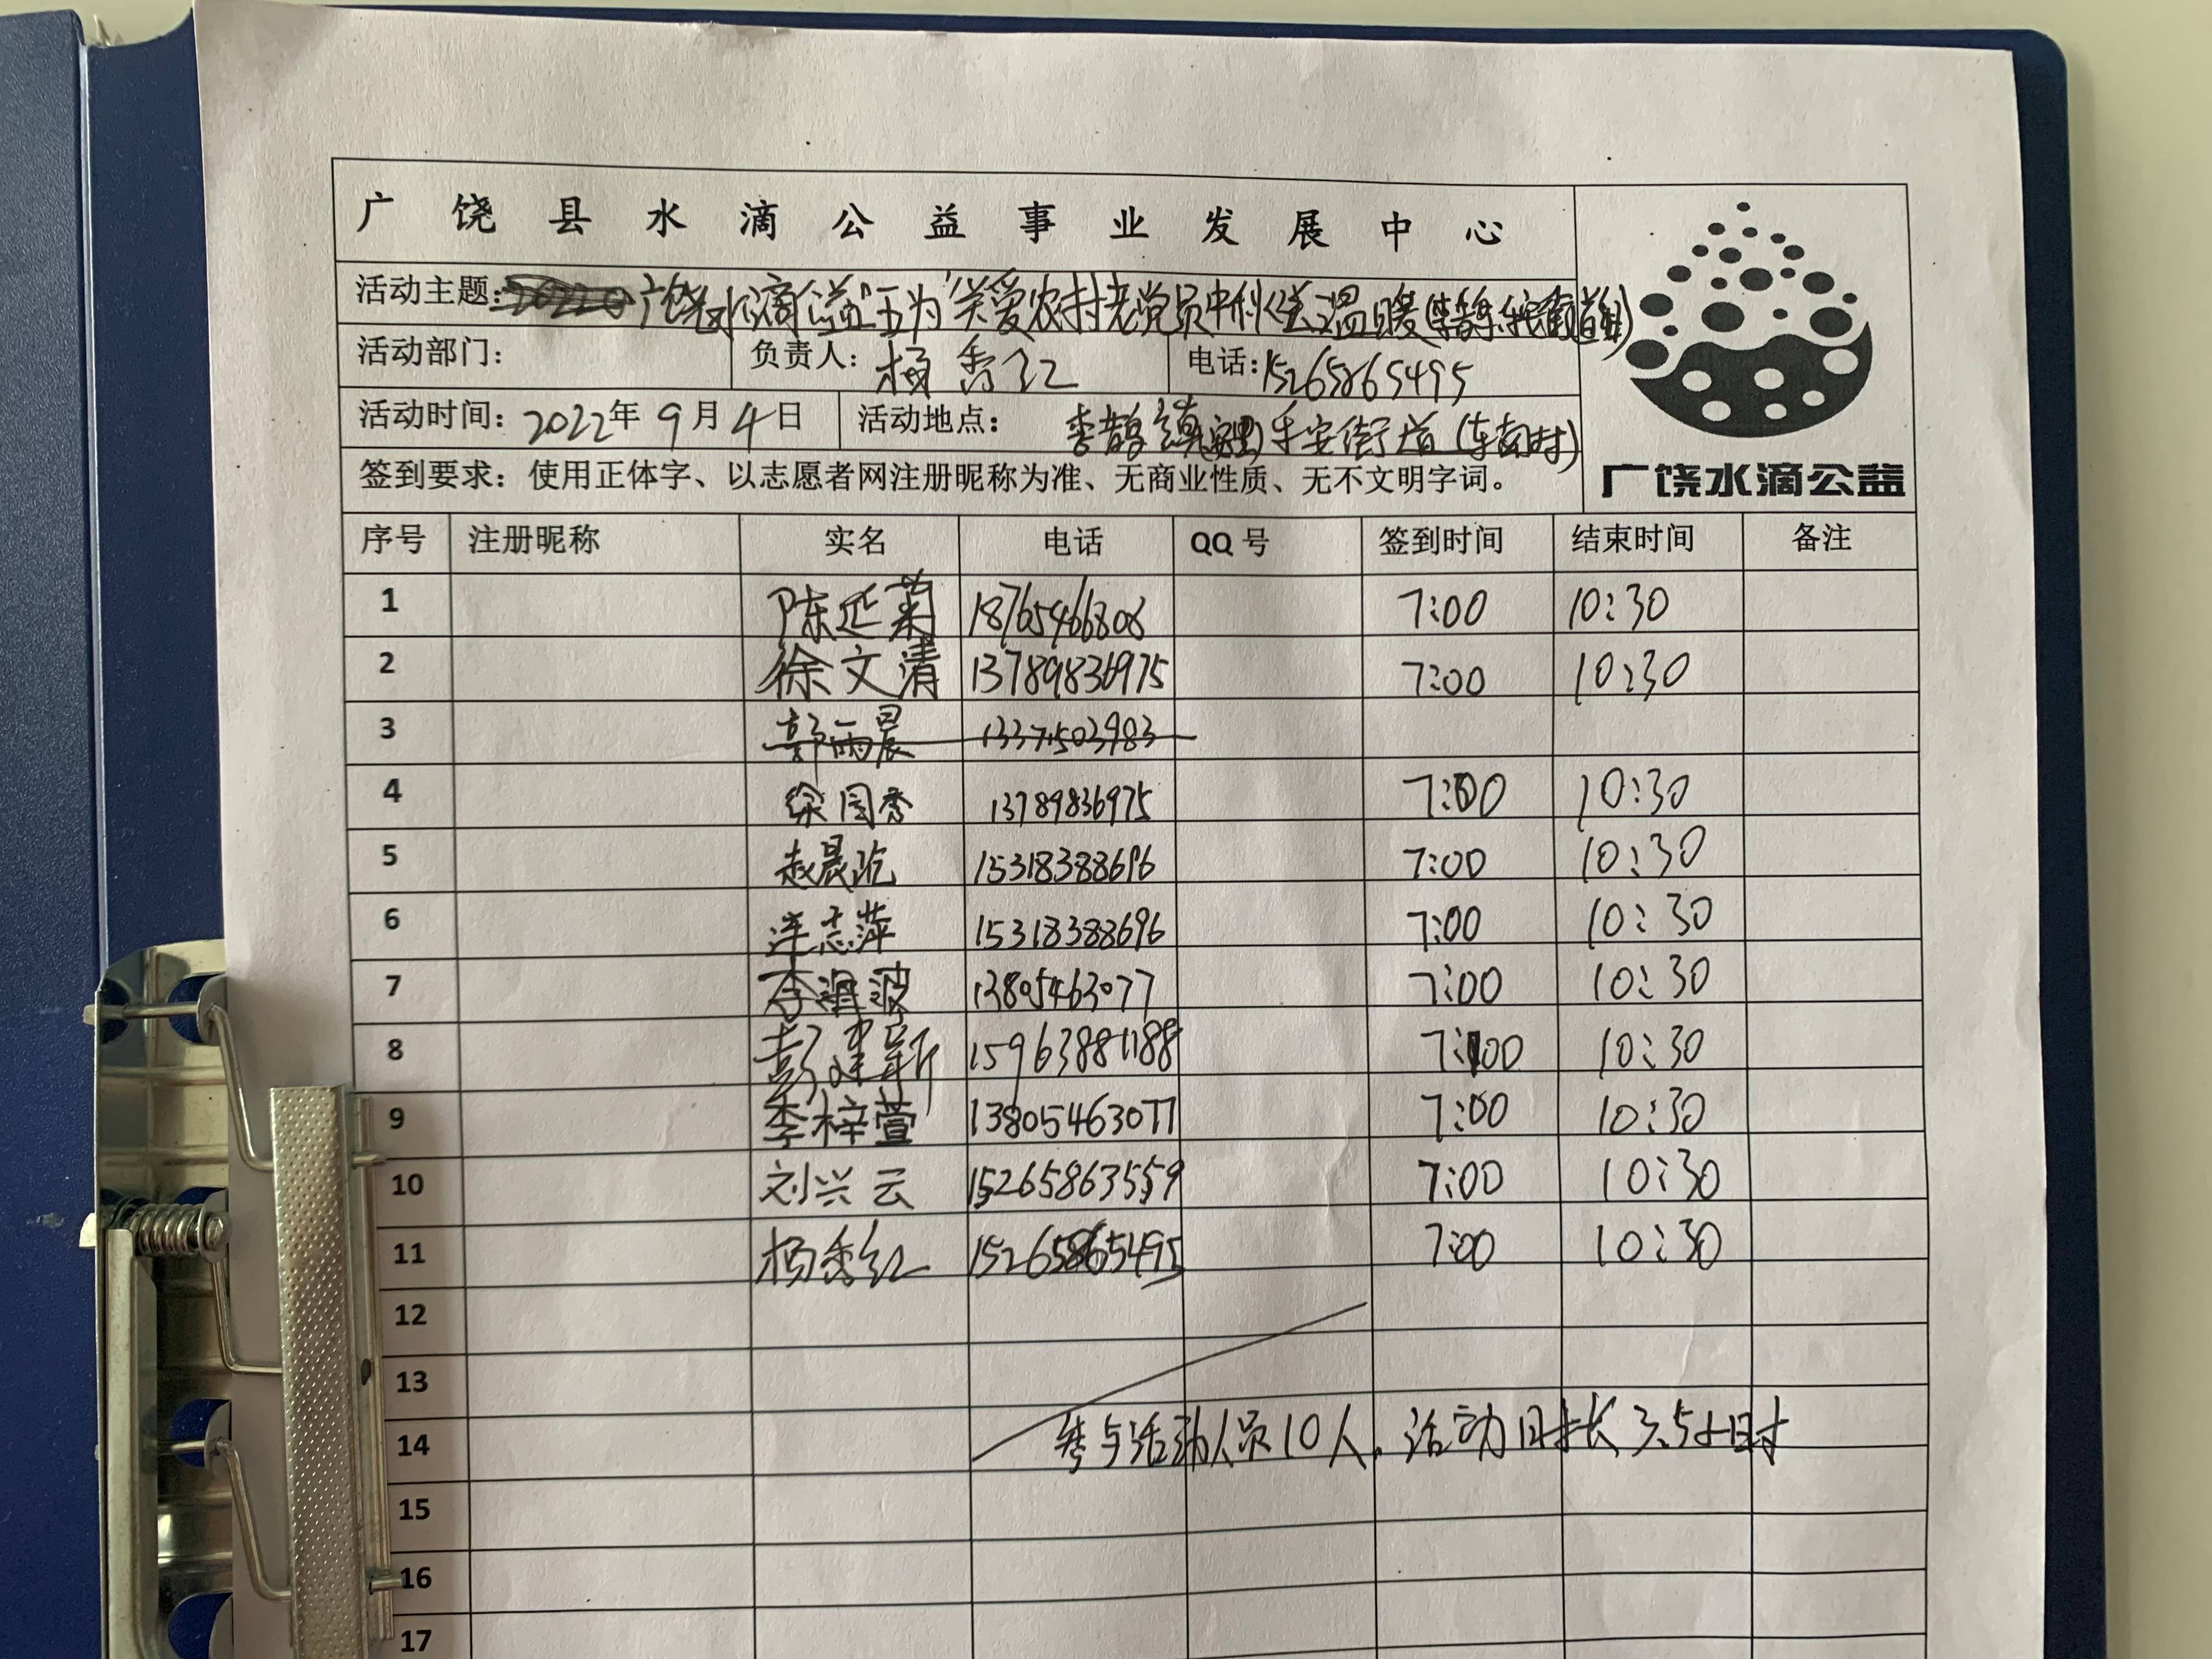 广饶县水滴公益事业发展中心
活动主题: 广饶水滴公益"五为"关爱农村老党员中秋送温暖
活动部门: 负责人: 杨秀红 电话: 15265865495
活动时间: 2022年9月4日 活动地点: 李鹊镇 乐安街道
签到要求: 使用正体字、以志愿者网注册昵称为准、无商业性质、无不文明字词。
广饶水滴公益
序号 注册昵称 实名 电话 QQ号 签到时间 结束时间 备注
1 陈延菊 18765466808 7:00 10:30
2 徐文清 13789836975 7:00 10:30
3 郭雨晨 13371503983
4 徐国秀 13789836975 7:00 10:30
5 赵晨 15318388696 7:00 10:30
6 连志萍 15318388696 7:00 10:30
7 李涓波 13805463077 7:00 10:30
8 彭建新 15963881188 7:00 10:30
9 李梓萱 13805463077 7:00 10:30
10 刘兴云 15265863559 7:00 10:30
11 杨秀红 15265865495 7:00 10:30
12
13
14 参与活动人员10人。活动时长3.5小时
15
16
17